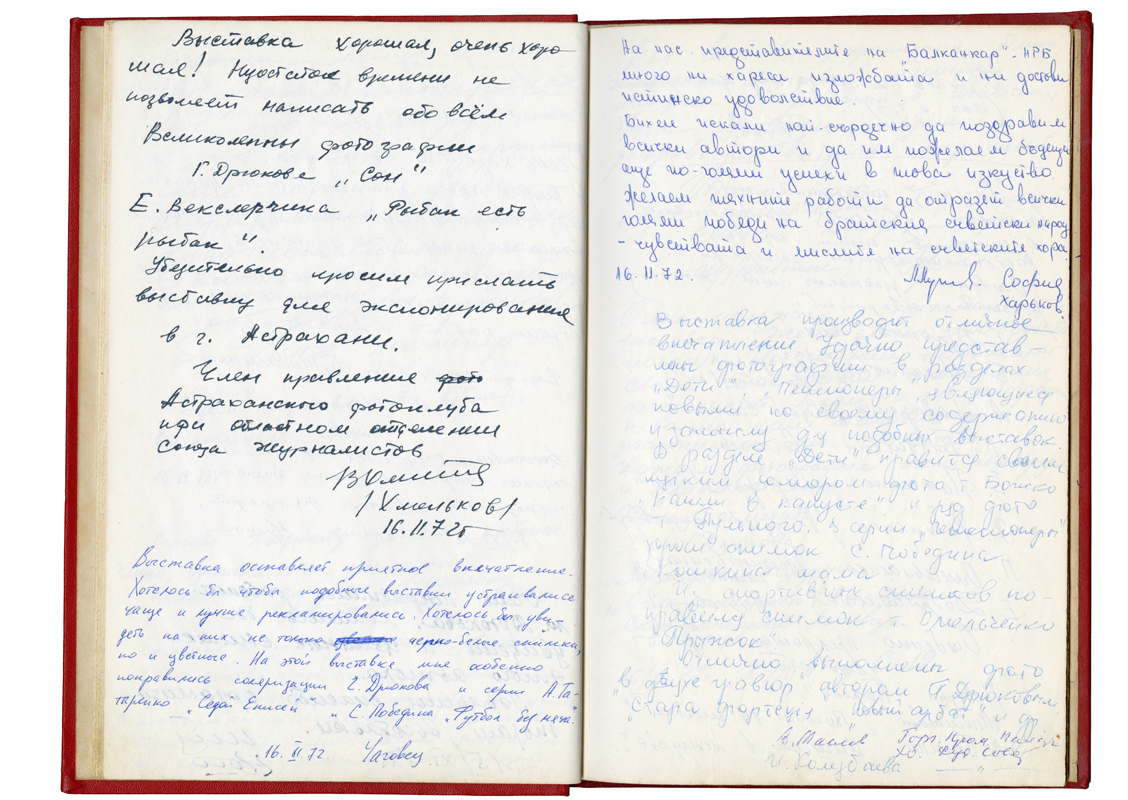 Выставка хорошая, очень хоро
шая! Недостаток времени не
позволяет написать обо всём
Великолепны фотографии
Г. Дрюкове „Сон"
Е. Векслерчика „Рыбак есть
рыбак".
Убедительно просим прислать
выставку для экспонирования
в г. Астрахани.
Член правления фото
Астраханского фотоклуба
при областном отделении
Союза журналистов
/Хмельков/
16.II.72г
Выставка оставляет приятное впечатление.
Хотелось бы чтобы подобные выставки устраивались
чаще и лучше рекламировались. Хотелось бы уви-
деть на них не только черно-белые снимки,
но и цветные. На этой выставке мне особенно
понравились соляризации Г. Дрюкова и серии А. Та-
таренко „Седой Енисей" С. Победина „Футбол без мяча".
16 II 72 Чаговец
На нас представителите на "Балканкар" - НРБ
много ни хареса изложбата и ни достави
истинско удоволствие.
Бихме искали най-сърдечно да поздравим
всички автори и да им пожелаем бъдещи
още по-големи успехи в това изкуство.
Желаем техните работи да отразят всички
големи победи на братския съветски народ
- чувствата и мислите на съветските хора.
16.II.72. София
Харьков.
Выставка производит отличное
впечатление. Удачно представ-
лены фотографии в разделах
„Дети" „Пенсионеры",
новыми по своему содержанию
и замыслу для подобных выставок.
В разделе „Дети" нравится своим
мягким юмором фото т. Бойко
„Нашли в капусте" и ряд фото
Пульного. В серии „Пенсионеры"
хорош снимок С. Победина
мама"
Из спортивных снимков по-
нравился снимок т. Омольченко
„Прыжок"
Отлично выполнены фото
"в духе гравюр" автором Г. Дрюковым
„Стара фортеця", и др
В. Маслов
И. Голубаева — " —